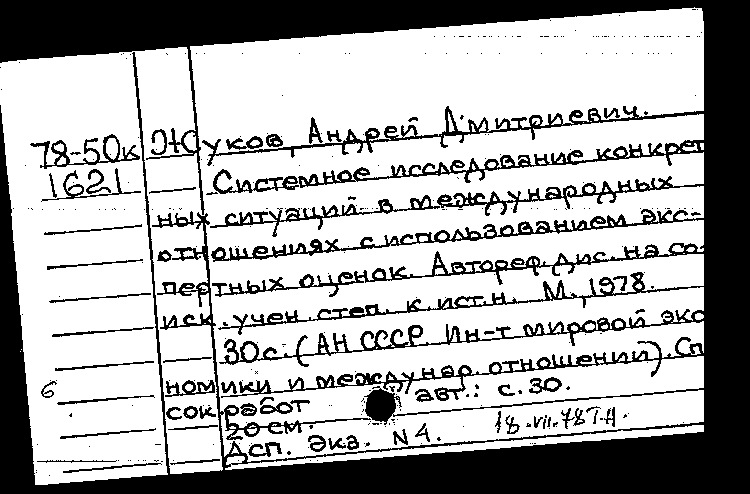 78-50к Жуков, Андрей Дмитриевич.
1621 Системное исследование конкрет
ных ситуаций в международных
отношениях с использованием экс-
пертных оценок. Автореф. дис. на со-
иск. учен. степ. к. ист. н. М., 1978.
30 с. (АН СССР. Ин-т мировой эко
номики и междунар. отношений). Сп
6
сок работ авт.: с. 30.
20 см.
Дсп. Экз. N 4. 18.VII.78 Т.Н.